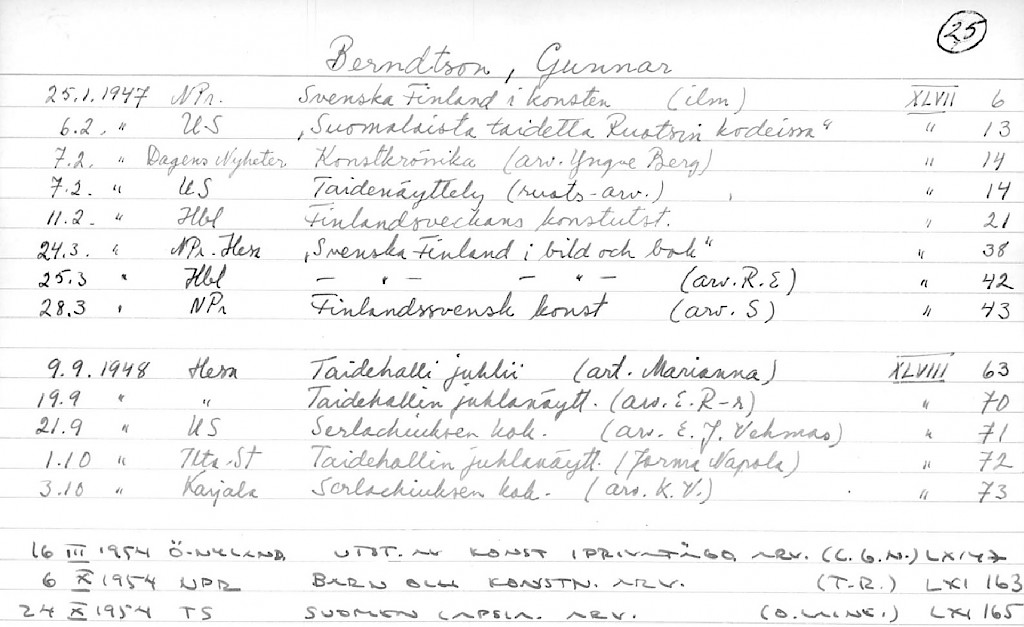 25
Berndtson, Gunnar
25.1.1947 NPr. Svenska Finland i konsten (ilm) XLVII 6
6.2. " US "Suomalaista taidetta Ruotsin kodeissa" " 13
7.2. " Dagens Nyheter Konstkrönika (arv. Yngve Berg) " 14
7.2. " US Taidenäyttely (ruots-arv.) " 14
11.2. " Hbl Finlandsveckans konstutst. " 21
24.3. " NPr. Hesa "Svenska Finland i bild och bok" " 38
25.3 " Hbl — " — — " — (arv. R.E) " 42
28.3 " NPr Finlandssvensk konst (arv. S) " 43
9.9.1948 Hesa Taidehalli juhlii (art. Marianna) XLVIII 63
19.9 " " Taidehallin juhlanäytt. (arv. E. R-r) " 70
21.9 " US Serlachiuksen kok. (arv. E. J. Vehmas) " 71
1.10 " Ilta-St Taidehallin juhlanäytt. (Jorma Napola) " 72
3.10 " Karjala Serlachiuksen kok. (arv. K.V.) " 73
16 III 1954 Ö-NYLAND. UTST. AV KONST I PRIVATÄGO ARV. (C.G.N.)
6 X 1954 NPR BARN OCH KONSTN. ARV. (T-R.) LXI 163
24 X 1954 TS SUOMEN LAPSIA. ARV. (O. LAINE.) LXI 165